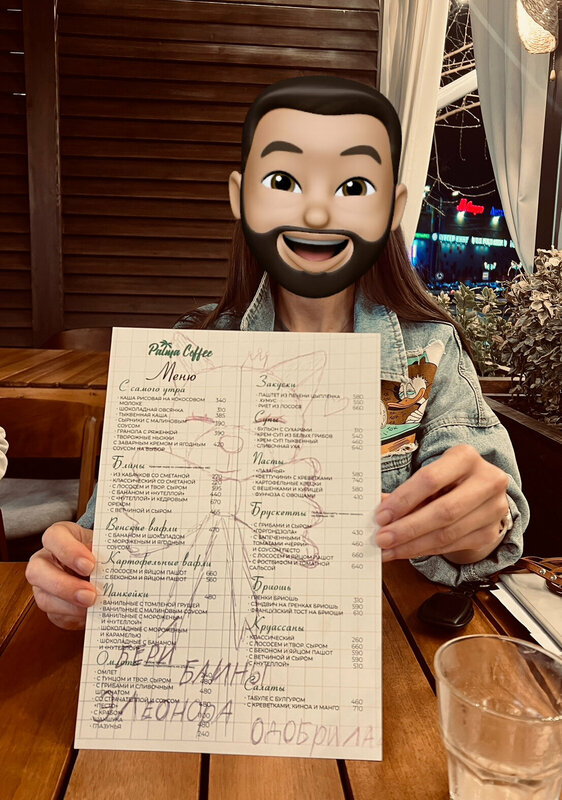 Palma Coffee
Меню
С самого утра
· КАША РИСОВАЯ НА КОКОСОВОМ МОЛОКЕ 340
· ШОКОЛАДНАЯ ОВСЯНКА 310
· ТЫКВЕННАЯ КАША 385
· СЫРНИКИ С МАЛИНОВЫМ СОУСОМ 390
· ГРАНОЛА С РЯЖЕНКОЙ 390
· ТВОРОЖНЫЕ НЬОККИ
С ЗАВАРНЫМ КРЕМОМ И ЯГОДНЫМ 420
СОУСОМ НА ВЫБОР
Блины
· ИЗ КАБАЧКОВ СО СМЕТАНОЙ
· КЛАССИЧЕСКИЙ СО СМЕТАНОЙ
· С ЛОСОСЕМ И ТВОР. СЫРОМ
· С БАНАНОМ И «НУТЕЛЛОЙ» 440
· С «НУТЕЛЛОЙ» И КЕДРОВЫМ
ОРЕХОМ
· С ВЕТЧИНОЙ И СЫРОМ
Венские вафли
· С БАНАНОМ И ШОКОЛАДОМ
· С МОРОЖЕНЫМ И ЯГОДНЫМ
СОУСОМ
Картофельные вафли
· С ЛОСОСЕМ И ЯЙЦОМ ПАШОТ 660
· С БЕКОНОМ И ЯЙЦОМ ПАШОТ 560
Панкейки
· ВАНИЛЬНЫЕ С ТОМЛЕНОЙ ГРУШЕЙ
· ВАНИЛЬНЫЕ С МАЛИНОВЫМ СОУСОМ
· ВАНИЛЬНЫЕ С МОРОЖЕНЫМ
И «НУТЕЛЛОЙ»
· ШОКОЛАДНЫЕ С МОРОЖЕНЫМ
И КАРАМЕЛЬЮ
· ШОКОЛАДНЫЕ С БАНАНОМ
И «НУТЕЛЛОЙ»
Омлеты
· ОМЛЕТ
· С ТУНЦОМ И ТВОР. СЫРОМ
· С ГРИБАМИ И СЛИВОЧНЫМ 480
ШПИНАТОМ
· СО СТРАЧАТЕЛЛОЙ И СОУСОМ
«ПЕСТО»
· С КРАБОМ
· ШАКШУКА 480
· ГЛАЗУНЬЯ 240
Закуски
· ПАШТЕТ ИЗ ПЕЧЕНИ ЦЫПЛЁНКА 580
· ХУМУС
· РИЕТ ИЗ ЛОСОСЯ 660
Супы
· БУЛЬОН С СУХАРЯМИ 310
· КРЕМ-СУП ИЗ БЕЛЫХ ГРИБОВ 540
· КРЕМ-СУП ТЫКВЕННЫЙ 460
· СЛИВОЧНАЯ УХА 640
Пасты
· «ЛАЗАНЬЯ» 580
· «ФЕТТУЧИНИ» С КРЕВЕТКАМИ 740
· КАРТОФЕЛЬНЫЕ КЛЁЦКИ
С ВЕШЕНКАМИ И КУРИЦЕЙ
· ФУНЧОЗА С ОВОЩАМИ 410
Брускетты
· С ГРИБАМИ И СЫРОМ
«ГОРГОНДЗОЛА» 430
· С ЗАПЕЧЕННЫМИ
ТОМАТАМИ «ЧЕРРИ» 460
И СОУСОМ ПЕСТО
· С ЛОСОСЕМ И ЯЙЦОМ ПАШОТ 660
· С РОСТБИФОМ И ТОМАТНОЙ 640
САЛЬСОЙ
Бриошь
· ГРЕНКИ БРИОШЬ 310
· СЭНДВИЧ НА ГРЕНКАХ БРИОШЬ 590
· ФРАНЦУЗСКИЙ ТОСТ БРИОШЬ 610
Круассаны
· КЛАССИЧЕСКИЙ 260
· С ЛОСОСЕМ И ТВОР. СЫРОМ 660
· С БЕКОНОМ И ЯЙЦОМ ПАШОТ 560
· С ВЕТЧИНОЙ И СЫРОМ 590
· С «НУТЕЛЛОЙ» 310
Салаты
· ТАБУЛЕ С БУЛГУРОМ 460
· С КРЕВЕТКАМИ, КИНОА И МАНГО 710
БЕРИ
БЛИНЫ
ЛЕОНОРА
ОДОБРИЛА